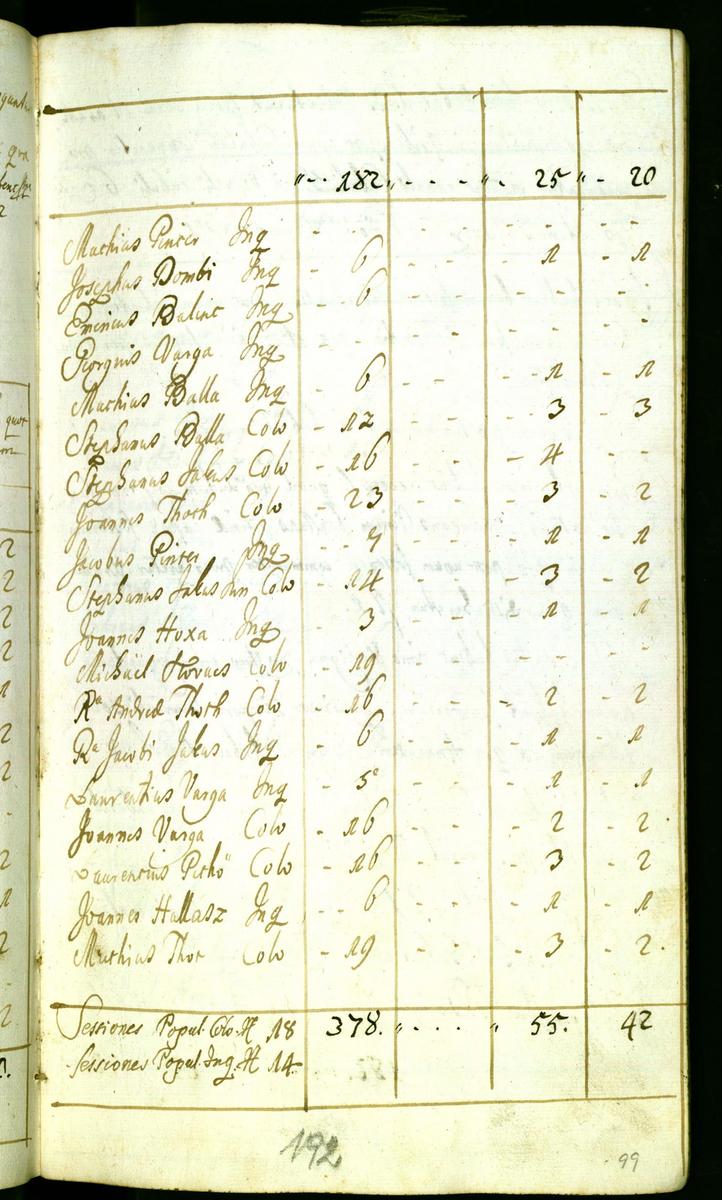 "-- 182 " - - - " - 25 " - 20
Mathias Pinter Inq - - - - - - - -
Josephus Dombi Inq - 6 - - - - 1 - 1
Emericus Balint Inq - 6 - - - - - - -
Georgius Varga Inq - - - - - - - -
Mathias Balla Inq - 6 - - - - 1 - 1
Stephanus Balla Colo - 12 - - - - 3 - 3
Stephanus Jakus Colo - 16 - - - - 4 - -
Joannes Thoth Colo - 23 - - - - 3 - 2
Jacobus Pinter Inq - 7 - - - - 1 - 1
Stephanus Jakus Jun Colo - 14 - - - - 3 - 2
Joannes Hoxa Inq - 3 - - - - 1 - 1
Michaël Kovacs Colo - 19 - - - - - - -
Ra Andreæ Thoth Colo - 16 - - - - 2 - 2
Ra Jacobi Jakus Inq - 6 - - - - 1 - 1
Laurentius Varga Inq - 5 - - - - 1 - 1
Joannes Varga Colo - 16 - - - - 2 - 2
Laurentius Pethö Colo - 16 - - - - 3 - 2
Joannes Hallasz Inq - - 6 - - - - 1 - 1
Mathias Thot Colo - 19 - - - - 3 - 2.
Sessiones Popul. Colo. H 18 378. " - - - " 55. 42
Sessiones Popul. Inq. H 14
192
99